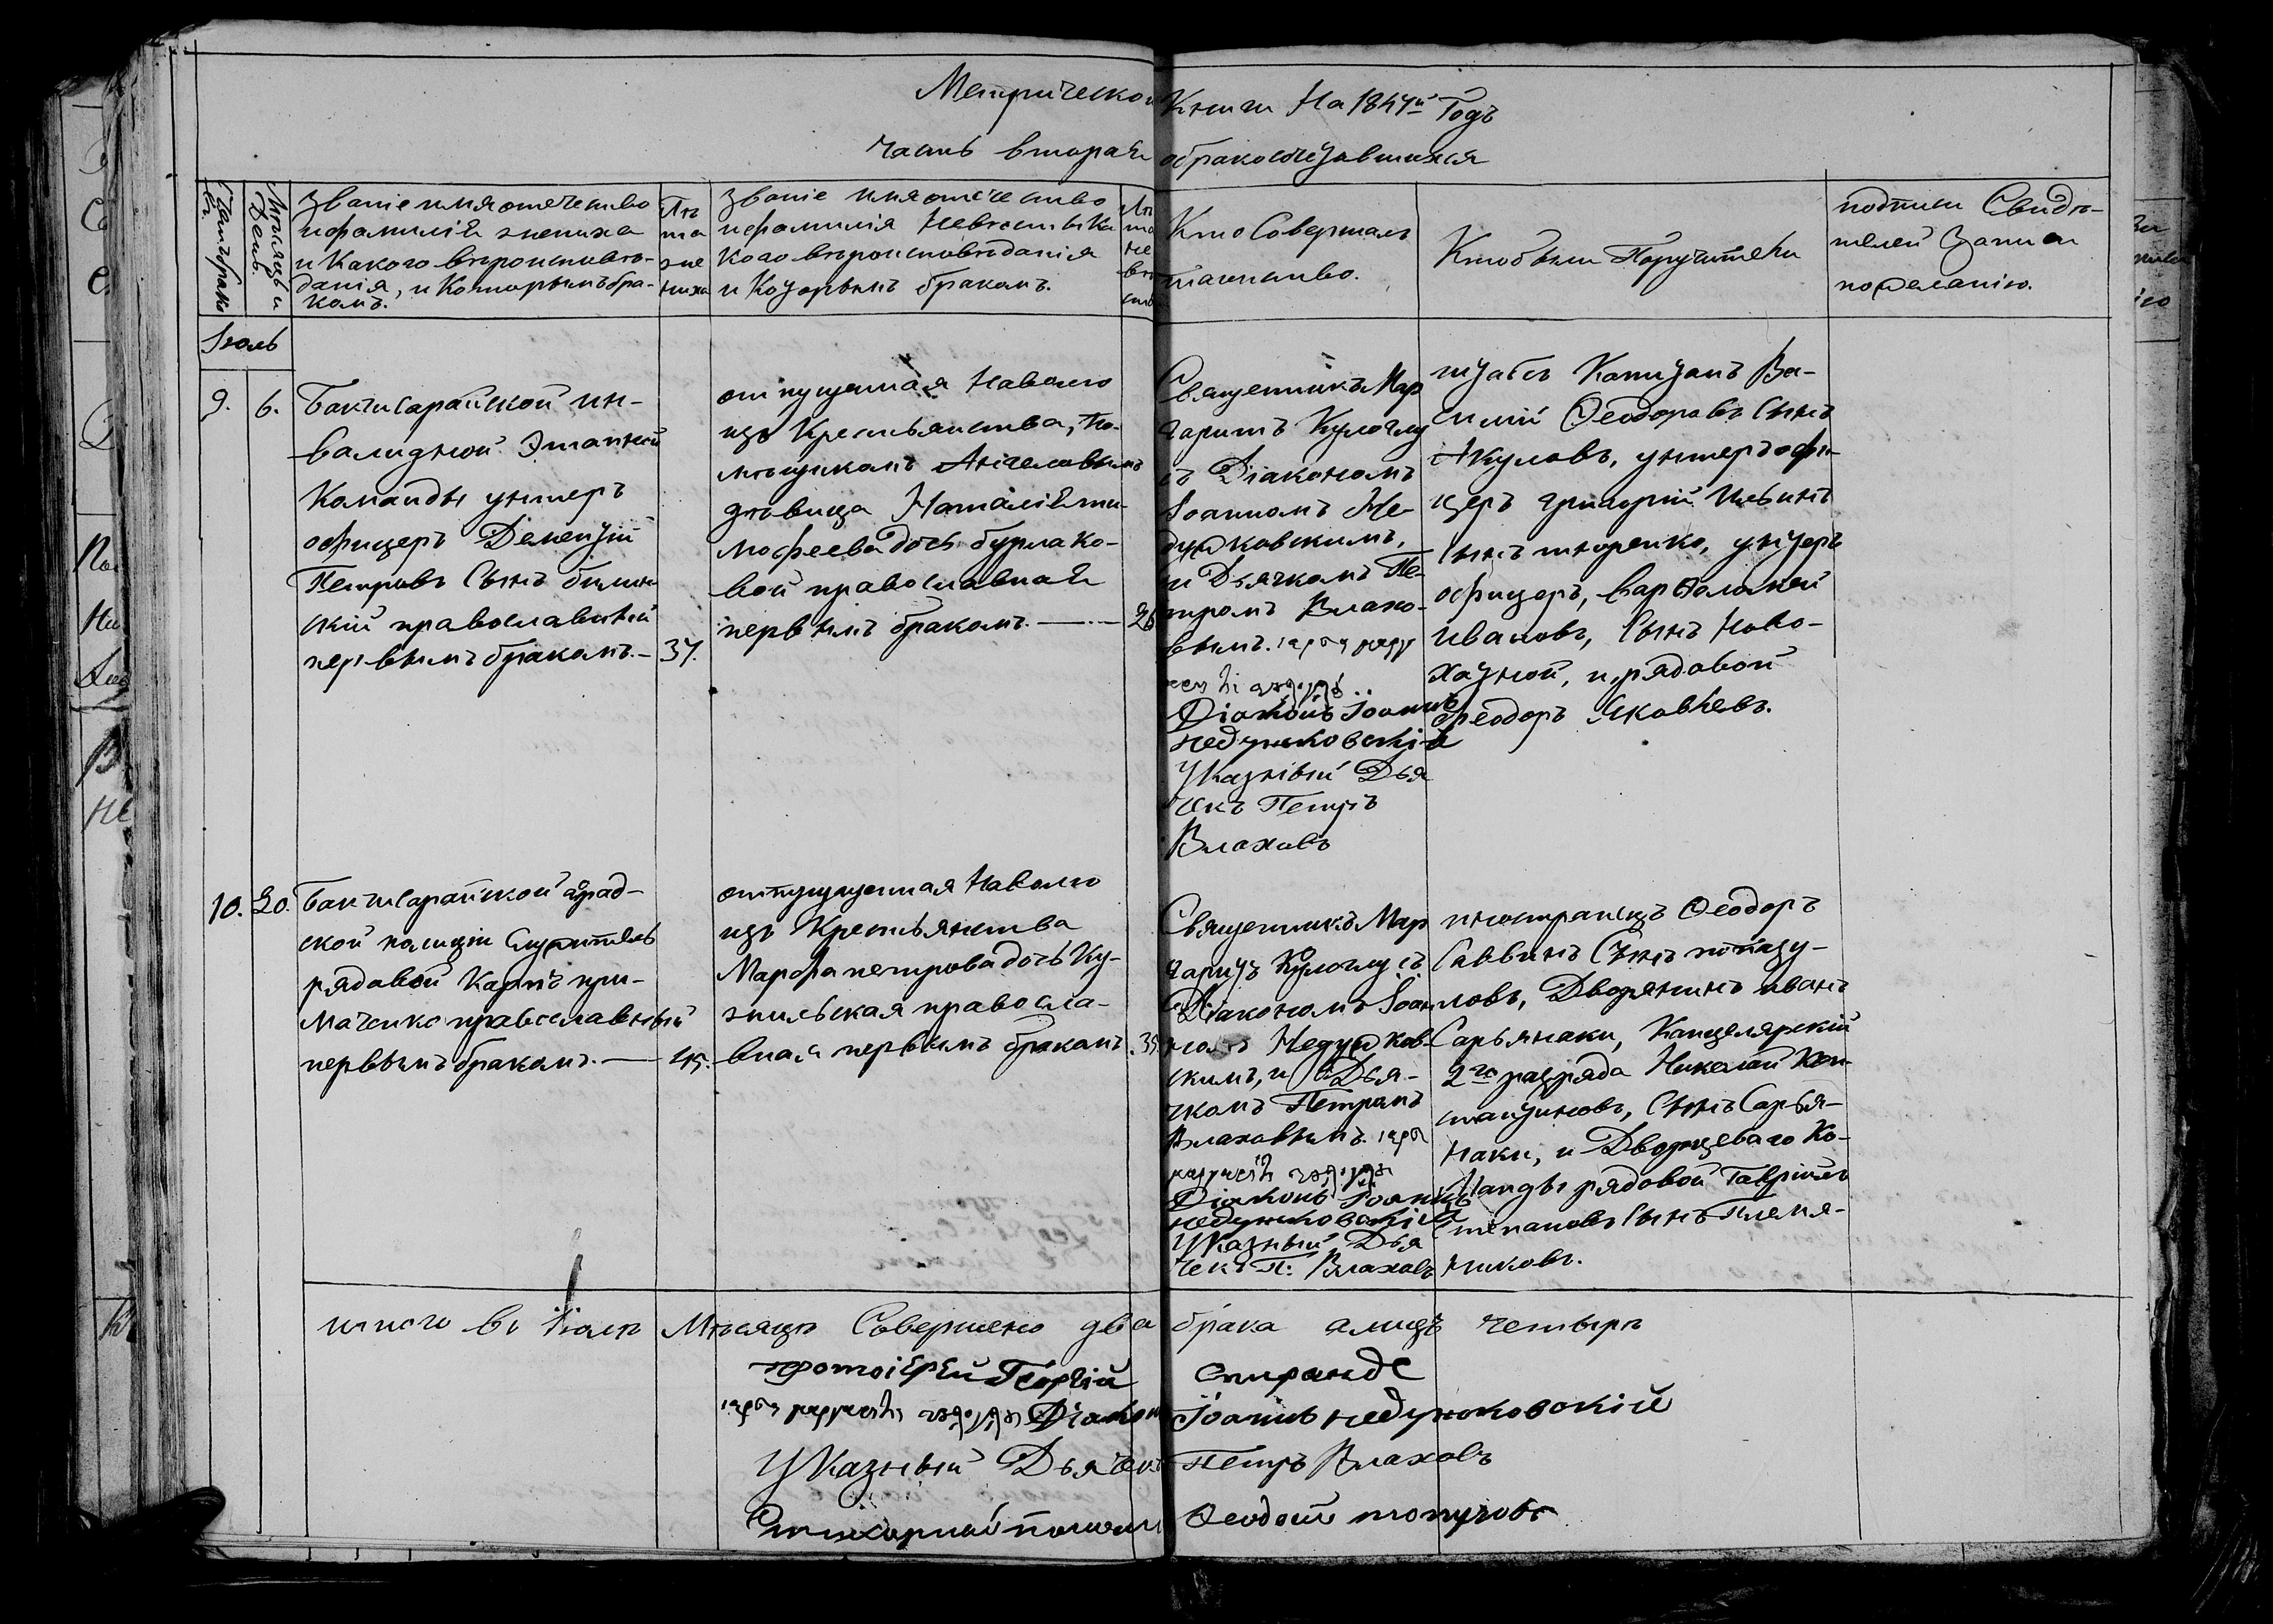 Метрической Книги На 1847й Годъ
часть вторая обракосочетавшихся
Счетъ браковъ.
Мѣсяцъ и День.
Званіе имя отечество
и фамилія жениха
и Какого вѣроисповѣ-
данія, и Которымъ бра-
комъ.
Лѣ
та
же
ниха
Званіе имя отечество
и фамилія Невѣсты Ка
кого вѣроисповѣданія
и Которымъ бракомъ.
Лѣ
та
не
вѣ
сты
Кто Совершалъ
таинство.
Кто были Поручители
подписи Свидѣ-
телей Записи
по желанію.
Іюль
9. 6.
Бакчисарайской ин-
валидной Этапной
Команды унтеръ
офицеръ Дементій
Петровъ Сынъ
православный
первымъ бракомъ.— 37.
отпущенная Наволю
изъ Крестьянства, По-
мѣщикомъ
дѣвица Наталія ти-
мофеева дочь бурлако-
вой православная
первымъ бракомъ.— 26
Священникъ Мар
гаритъ Кулоглу
съ Діакономъ
Іоанномъ Не-
дужковскимъ,
и Дьячкомъ Пе-
тромъ Влахо-
вымъ.
Діаконъ Іоаннъ
недужковскій
Указный Дья
чекъ Петръ
Влаховъ
штабсъ Капитанъ Ва-
силій Ѳеодоровъ Сынъ
Акуловъ, унтеръ офи-
церъ григорій Ильинъ
Сынъ, унтеръ
офицеръ, Варѳоломей
Ивановъ, Сынъ Ново-
хатной, и рядовой
Ѳеодоръ Яковлевъ.
10. 20.
Бакчисарайской град-
ской полиціи Служитель
рядовой Карпъ при-
маченко православный
первымъ бракомъ.— 45.
отпущенная Наволю
изъ Крестьянства
Марфа петрова дочь Ку-
зпильская правосла-
вная первымъ бракомъ. 35
Священникъ Мар
гаритъ Кулоглу съ
Діакономъ Іоан
номъ Недужков-
скимъ, и Дья-
чкомъ Петромъ
Влаховымъ.
Діаконъ Іоаннъ
недужковскій
Указный Дья
чекъ П: Влаховъ
иностранецъ Ѳеодоръ
Саввинъ Сынъ
Дворянинъ иванъ
Сарьянаки, Канцелярскій
2го разряда Николай Кон-
стантиновъ, Сынъ Сарья-
наки, и Дворцеваго Ко-
манды рядовой Гавріилъ
Степановъ Сынъ Племя-
никовъ.
итого въ Іюлѣ Мѣсяцѣ Совершено два брака а лицъ четыре
протоіерей Георгій Спиранде
Діаконъ Іоаннъ недужковскій
Указный Дьячекъ Петръ Влаховъ
Стихарный